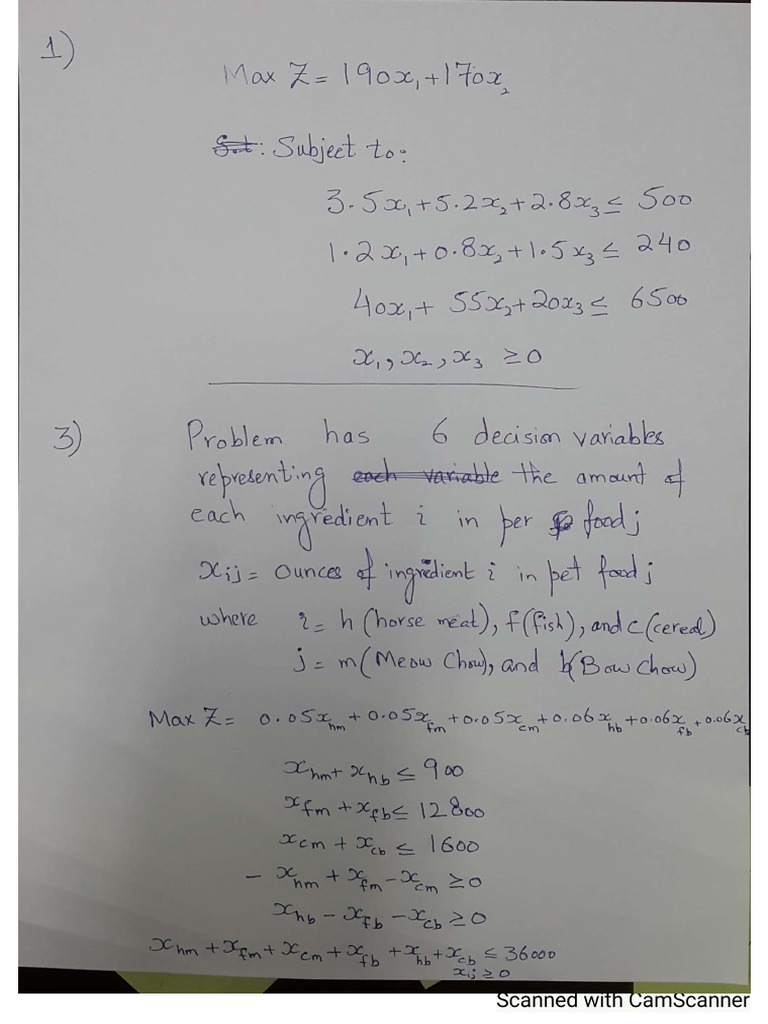 1)
Max Z = 190x₁ + 170x₂
S.t: Subject to:
3.5x₁ + 5.2x₂ + 2.8x₃ ≤ 500
1.2x₁ + 0.8x₂ + 1.5x₃ ≤ 240
40x₁ + 55x₂ + 20x₃ ≤ 6500
x₁, x₂, x₃ ≥ 0
3) Problem has 6 decision variables
representing each variable the amount of
each ingredient i in per food j
xij = ounces of ingredient i in pet food j
where i = h (horse meat), f (fish), and c (cereal)
j = m (Meow Chow), and b (Bow Chow)
Max Z = 0.05xhm + 0.05xfm + 0.05xcm + 0.06xhb + 0.06xfb + 0.06xcb
xhm + xhb ≤ 900
xfm + xfb ≤ 12800
xcm + xcb ≤ 1600
- xhm + xfm - xcm ≥ 0
xhb - xfb - xcb ≥ 0
xhm + xfm + xcm + xfb + xhb + xcb ≤ 36000
xij ≥ 0
Scanned with CamScanner